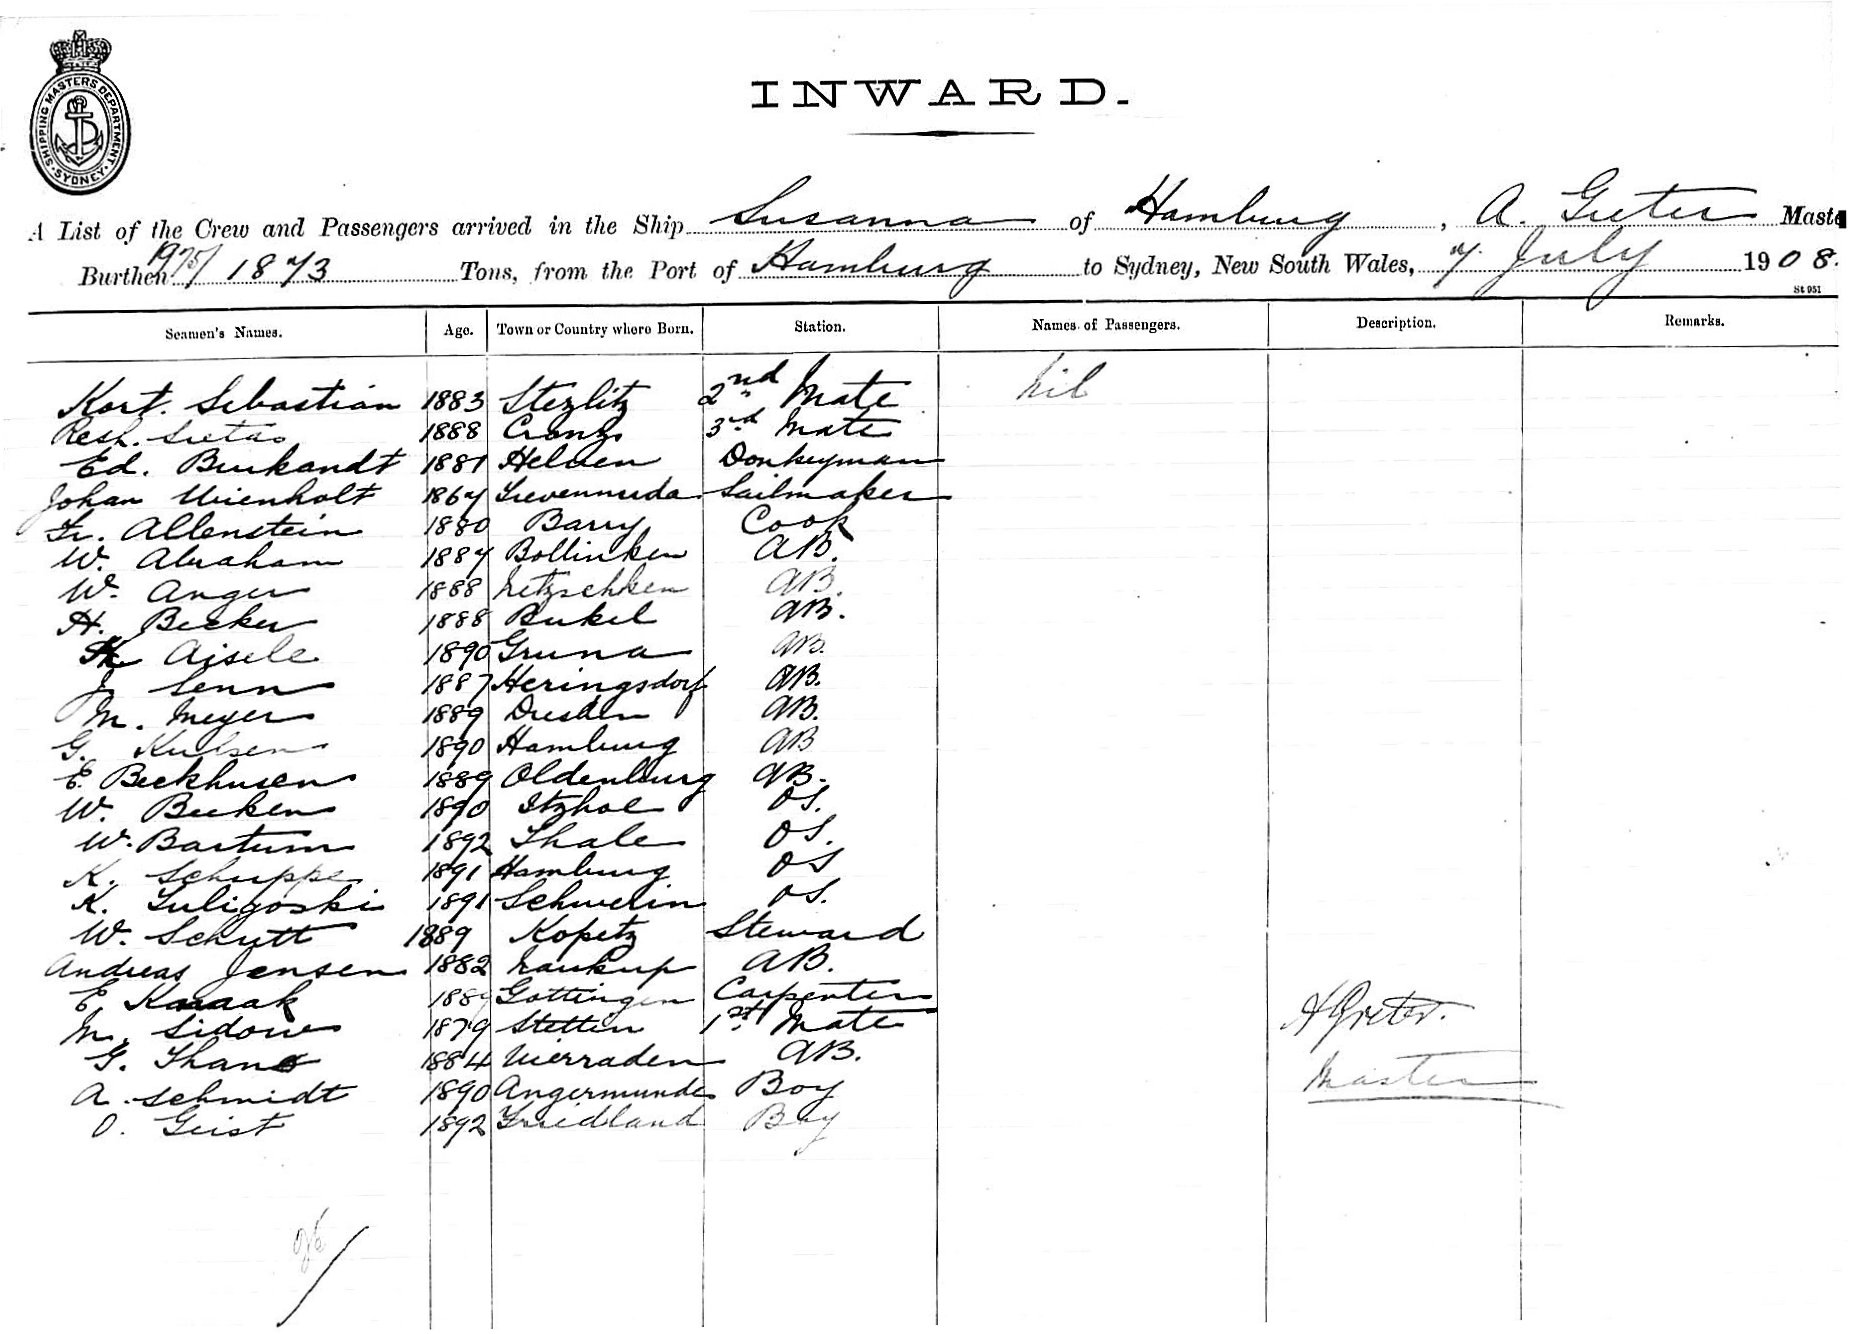 SHIPPING MASTERS DEPARTMENT
SYDNEY
INWARD.
A List of the Crew and Passengers arrived in the Ship Susanna of Hamburg, A. Maste
Burthen 1975/1873 Tons, from the Port of Hamburg to Sydney, New South Wales, 7. July 1908.
St 951
Seamen's Names. Age. Town or Country where Born. Station. Names of Passengers. Description. Remarks.
Kort. Sebastian 1883 Stezlitz 2nd Mate nil
1888 Cranz 3rd Mate
Ed. Burkandt 1881 Donkeyman
Johan Wienholt 1867 Sailmaker
Fr. Allenstein 1880 Barry Cook
W. Abraham 1887 Bollinken AB.
W. Anger 1888 Netzschken AB.
H. Becker 1888 AB.
Aisele 1890 Gruna AB.
J. Senn 1887 Heringsdorf AB.
M. Meyer 1889 Dresden AB.
G. 1890 Hamburg AB
E. Beckhusen 1889 Oldenburg AB.
W. Becken 1890 Itzhoe OS.
W. Bartum 1892 Thale OS.
K. Schuppe 1891 Hamburg OS
K. Suligoski 1891 Schwerin OS.
W. Schutt 1889 Kopitz Steward
Andreas Jensen 1882 AB.
E. 1889 Gottingen Carpenter
M. Sidow 1879 Stettin 1st Mate
A Grieter.
G. Thans 1884 Vierraden AB.
Master
A. Schmidt 1890 Angermunde Boy
O. Geist 1892 Friedland Boy